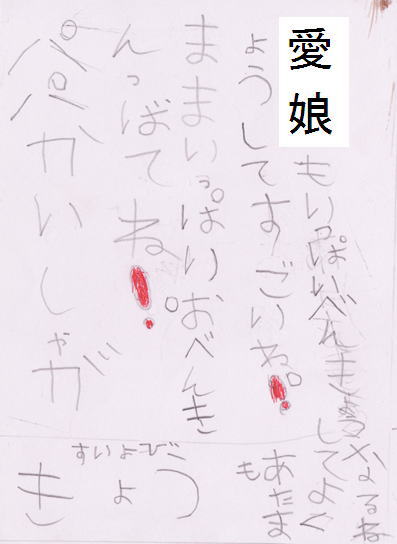 パパかいしゃが
んっばてね!
ままいっぱりおべんき
ょうしてすごいね。!
愛娘もいっぱいべんきょう
して
あたま
も
よく
なるね
すいよび
きょう